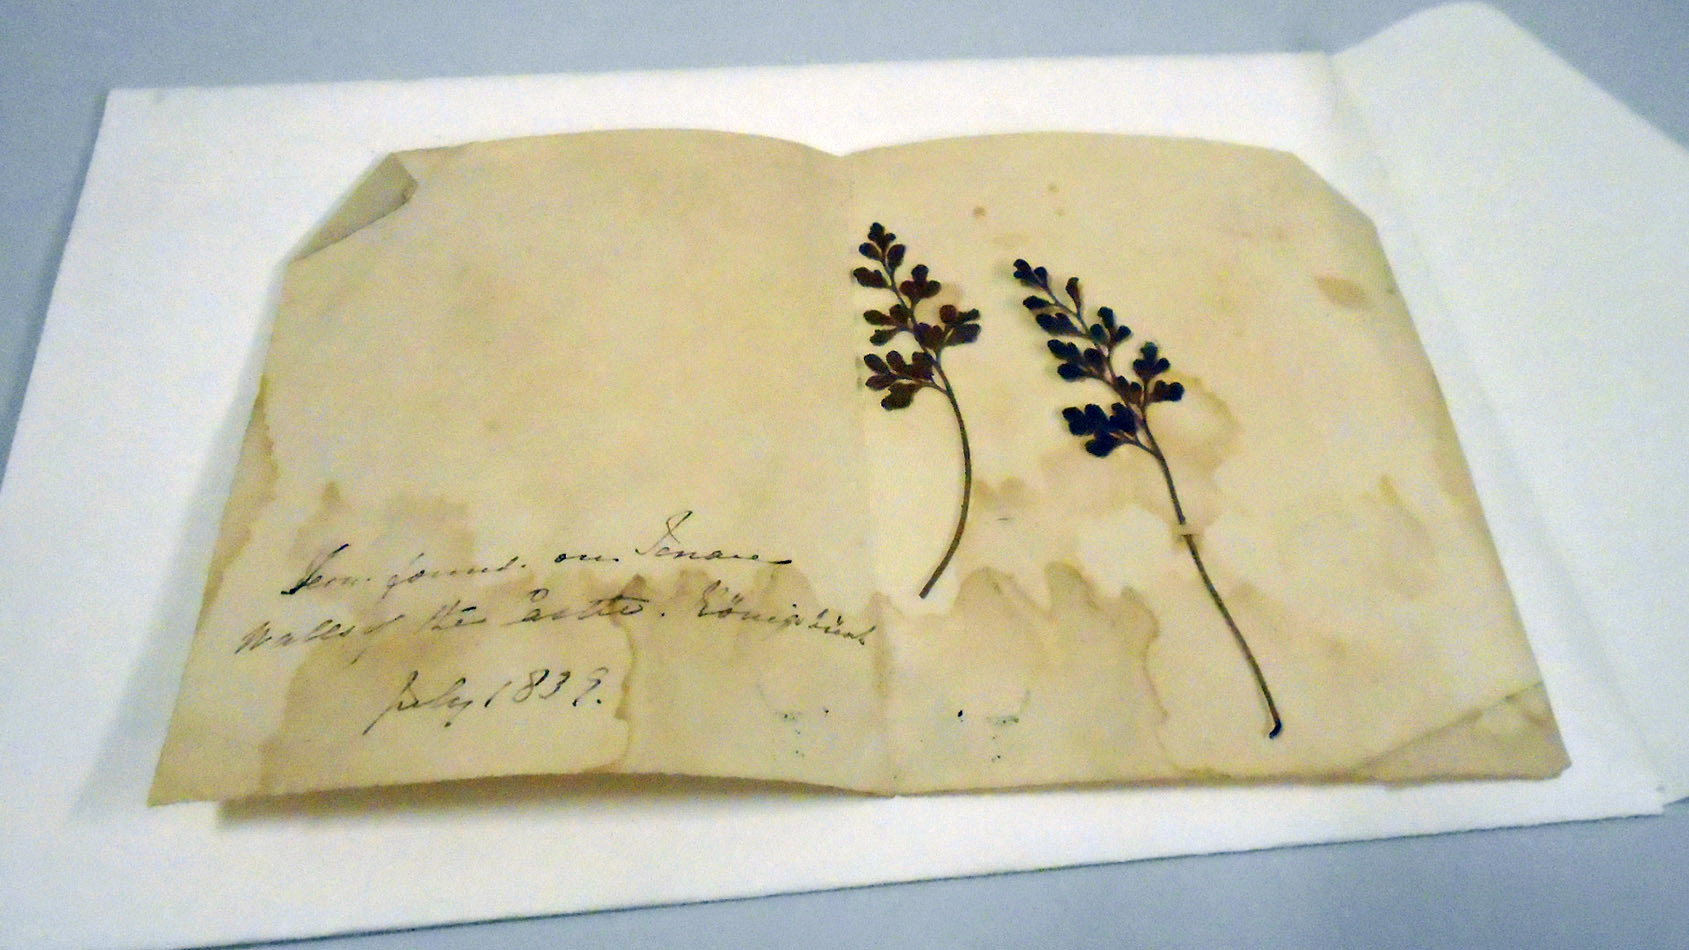 Fern found on
Walls of the Castle. Königs
July 1839.